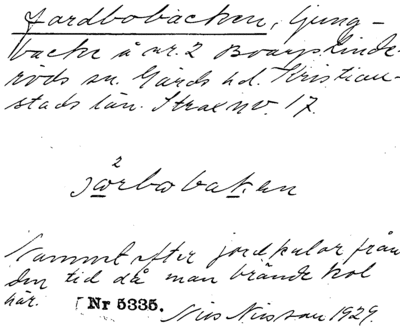 Jordbobacken, ljung-
backe å nr. 2 Boarp Linde-
röds sn. Gärds hd. Kristian-
stads län. Strax nv. 17.
2
jorbobakan
Namnet efter jordkulor från
den tid då man brände kol
här. Nr 5335. Nils Nilsson 1929.